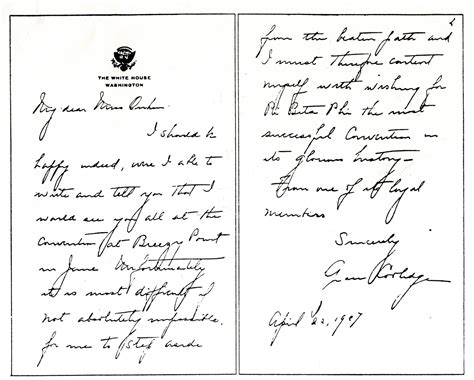 THE WHITE HOUSE
WASHINGTON
My dear Miss
I should be
happy indeed, were I able to
write and tell you that I
would see you all at the
Convention at Breezy Point
in June. Unfortunately
it is most difficult if
not absolutely impossible
for me to step aside
2
from the beaten path and
I must therefore content
myself with wishing for
Pi Beta Phi the most
successful Convention in
its glorious history –
From one of its loyal
members
Sincerely
Grace Coolidge
April 22, 1927